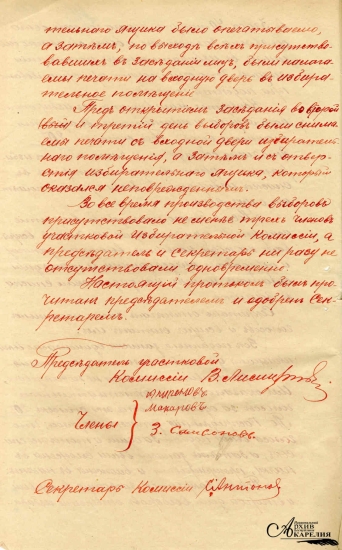 тельнаго ящика было опечатываемо,
а затѣмъ, по выходѣ всѣхъ присутство-
вавшихъ въ засѣданіи лицъ, были налага-
емы печати на входную дверь въ избира-
тельное помѣщеніе.
Предъ открытіемъ засѣданія во второй
и третій день выборовъ были снима-
емы печати съ входной двери избиратель-
наго помѣщенія, а затѣмъ и съ отвер-
стія избирательнаго ящика, который
оказался неповрежденнымъ.
Во все время производства выборовъ
присутствовало не менѣе трехъ членовъ
участковой Избирательной Комиссіи, а
предсѣдатель и секретарь ни разу не
отсутствовали одновременно.
Настоящій протоколъ былъ про-
читанъ предсѣдателемъ и одобренъ Сек-
ретаремъ.
Предсѣдатель участковой
Комиссіи В.
Макаровъ
Члены
З. Самсоновъ
Секретарь Комиссіи
Национальный
АРХИВ
КАРЕЛИЯ